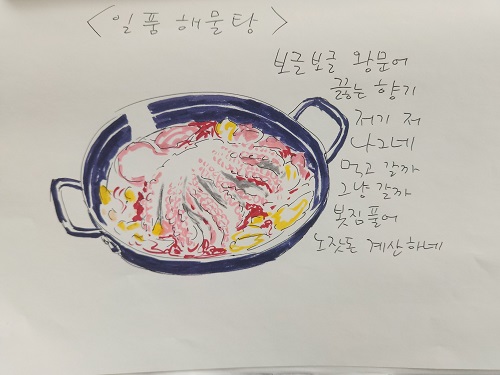 <일품해물탕>
보글보글 왕문어
끓는 향기
저기 저
나그네
먹고 갈까
그냥 갈까
봇짐풀어
노잣돈 계산하네